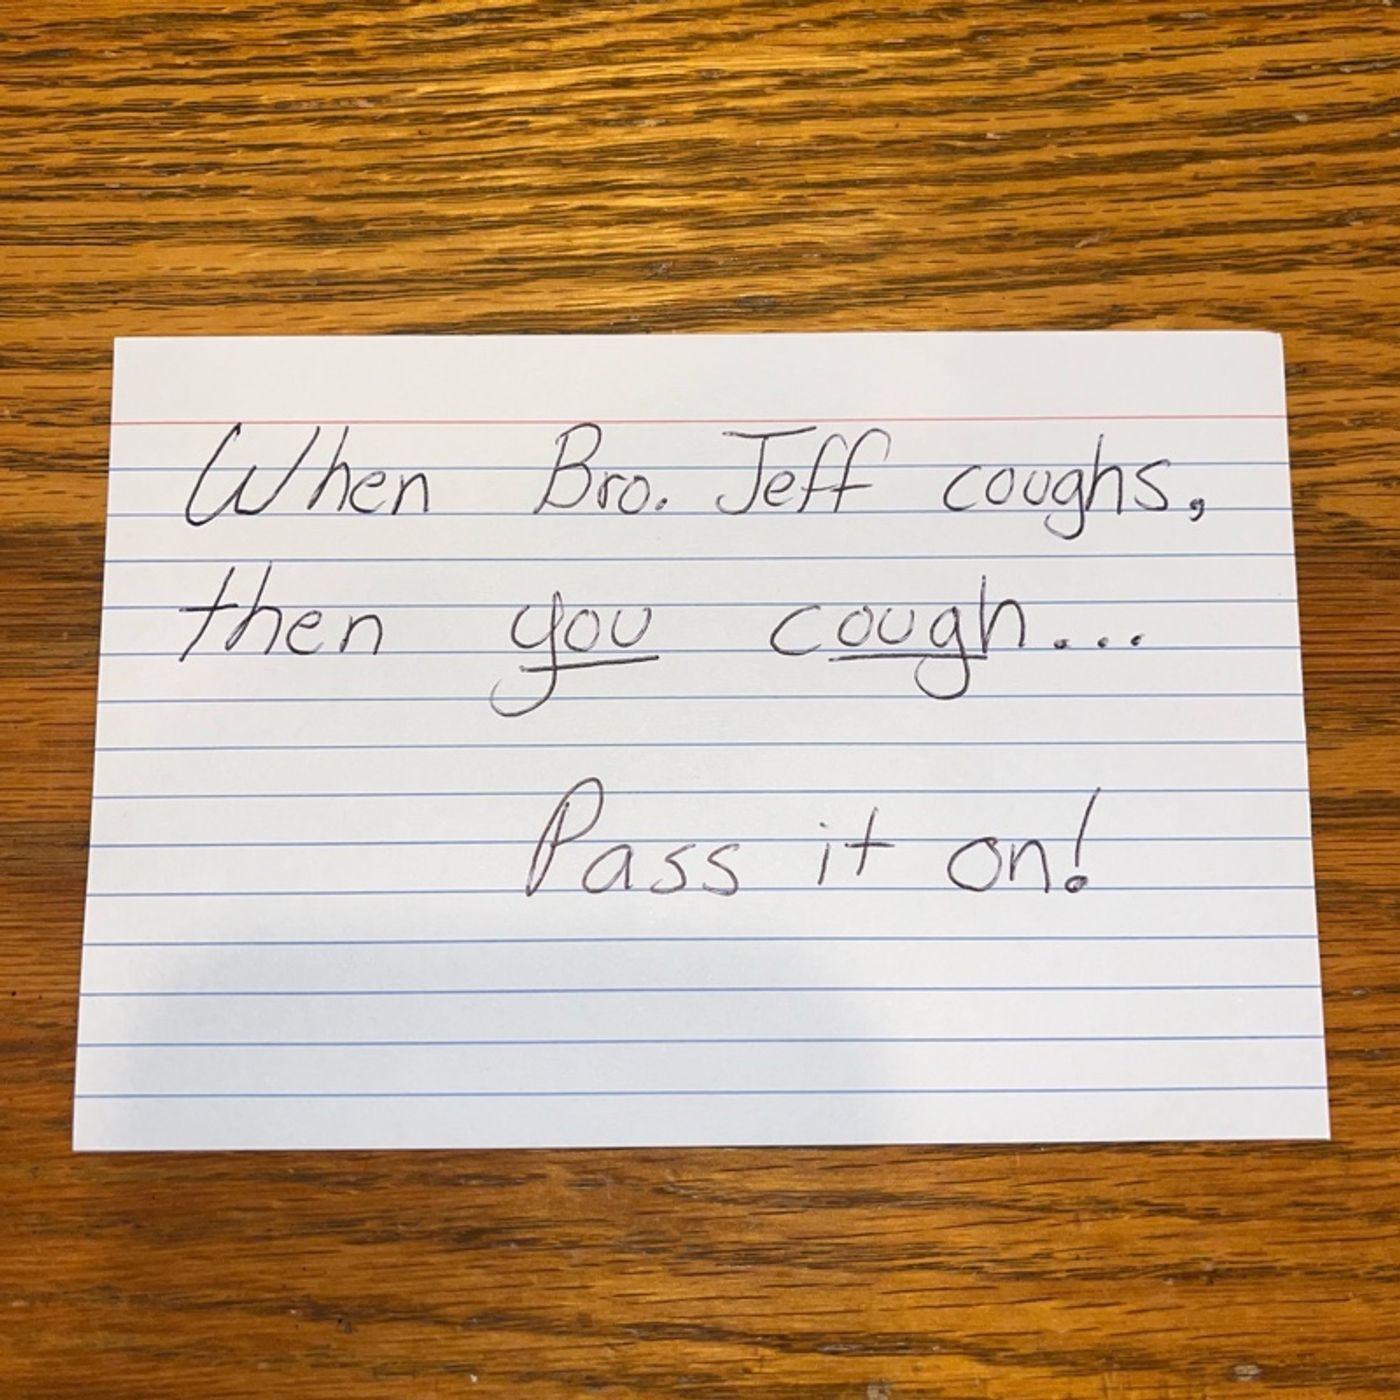 When Bro. Jeff coughs,
then you cough...
Pass it on!